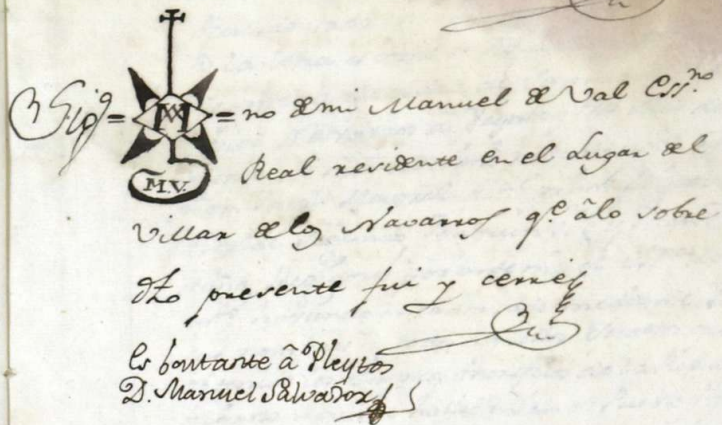 Sig = M = no de mi Manuel de Val Ess.no
M.V.
Real residente en el Lugar del
Villar de los Navarros q.e âlo sobre
dho presente fui y cerré
Es bastante â Pleytos
D. Manuel Salvador